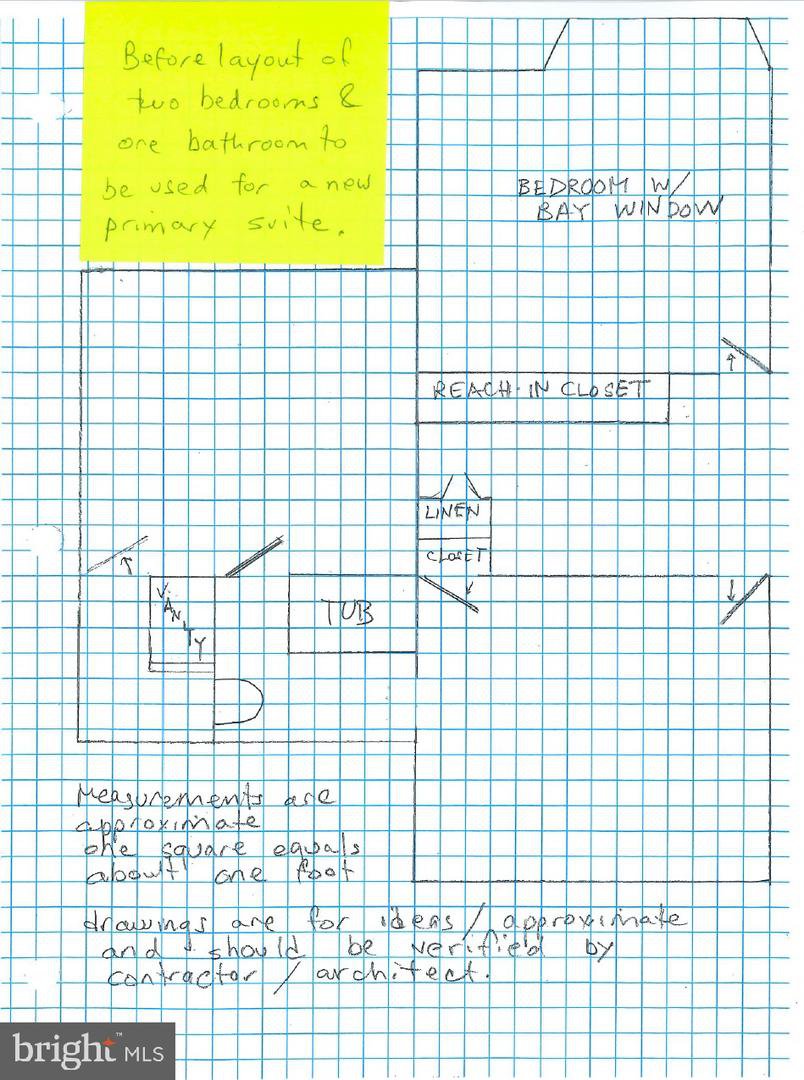 Before layout of
two bedrooms &
one bathroom to
be used for a new
primary suite.
BEDROOM W/
BAY WINDOW
REACH-IN CLOSET
LINEN
CLOSET
VANITY
TUB
Measurements are
approximate
one square equals
about one foot
drawings are for ideas/approximate
and should be verified by
contractor/architect.
bright™ MLS